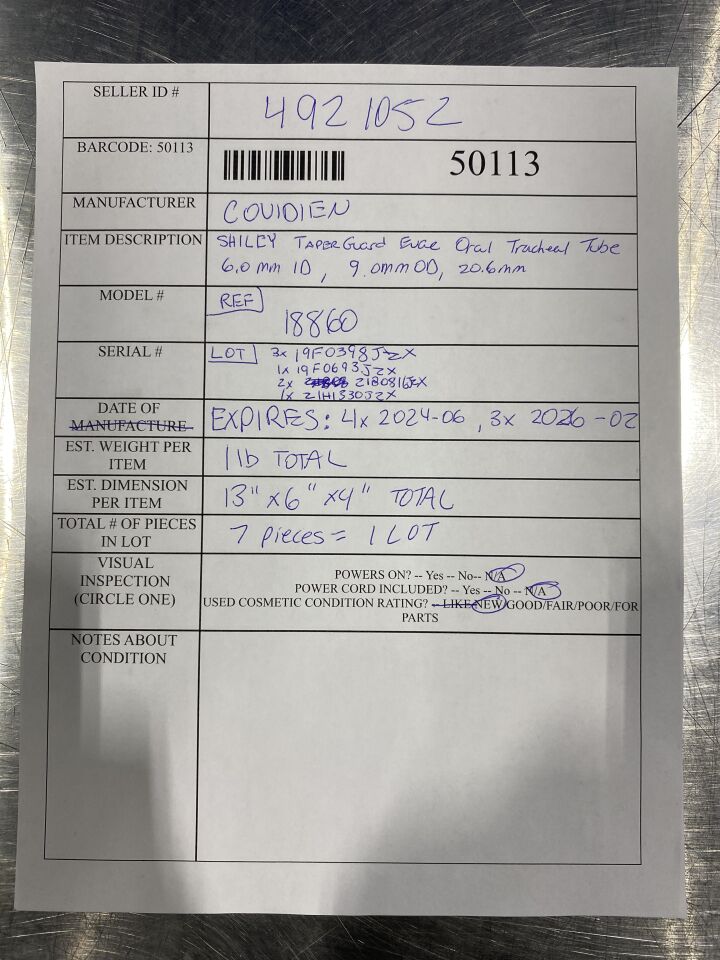 SELLER ID # 4921052
BARCODE: 50113 50113
MANUFACTURER COVIDIEN
ITEM DESCRIPTION SHILEY TAPERGuard Evac Oral Tracheal Tube
6.0 mm ID, 9.0mm OD, 20.6mm
MODEL # REF
18860
SERIAL # LOT 3x 19F0398JZX
1x 19F0693JZX
2x 21B0816JZX
1x 21H1330JZX
DATE OF
MANUFACTURE EXPIRES: 4x 2024-06, 3x 2026-02
EST. WEIGHT PER
ITEM 1 lb TOTAL
EST. DIMENSION
PER ITEM 13" x 6" x 4" TOTAL
TOTAL # OF PIECES
IN LOT 7 pieces = 1 LOT
VISUAL
INSPECTION
(CIRCLE ONE)
POWERS ON? -- Yes -- No-- N/A
POWER CORD INCLUDED? -- Yes -- No -- N/A
USED COSMETIC CONDITION RATING? -- LIKE NEW/GOOD/FAIR/POOR/FOR
PARTS
NOTES ABOUT
CONDITION